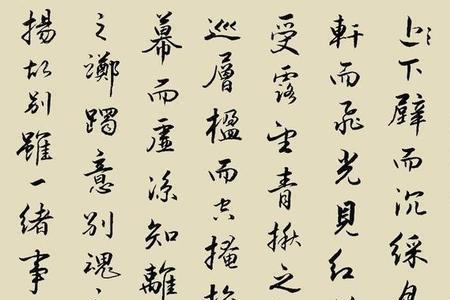 下壁而沉綵
軒而飛光見紅
受露望青楸之
巡層楹而空掩
幕而虛涼知離
之躑躅意別魂之
揚故別雖一緒事